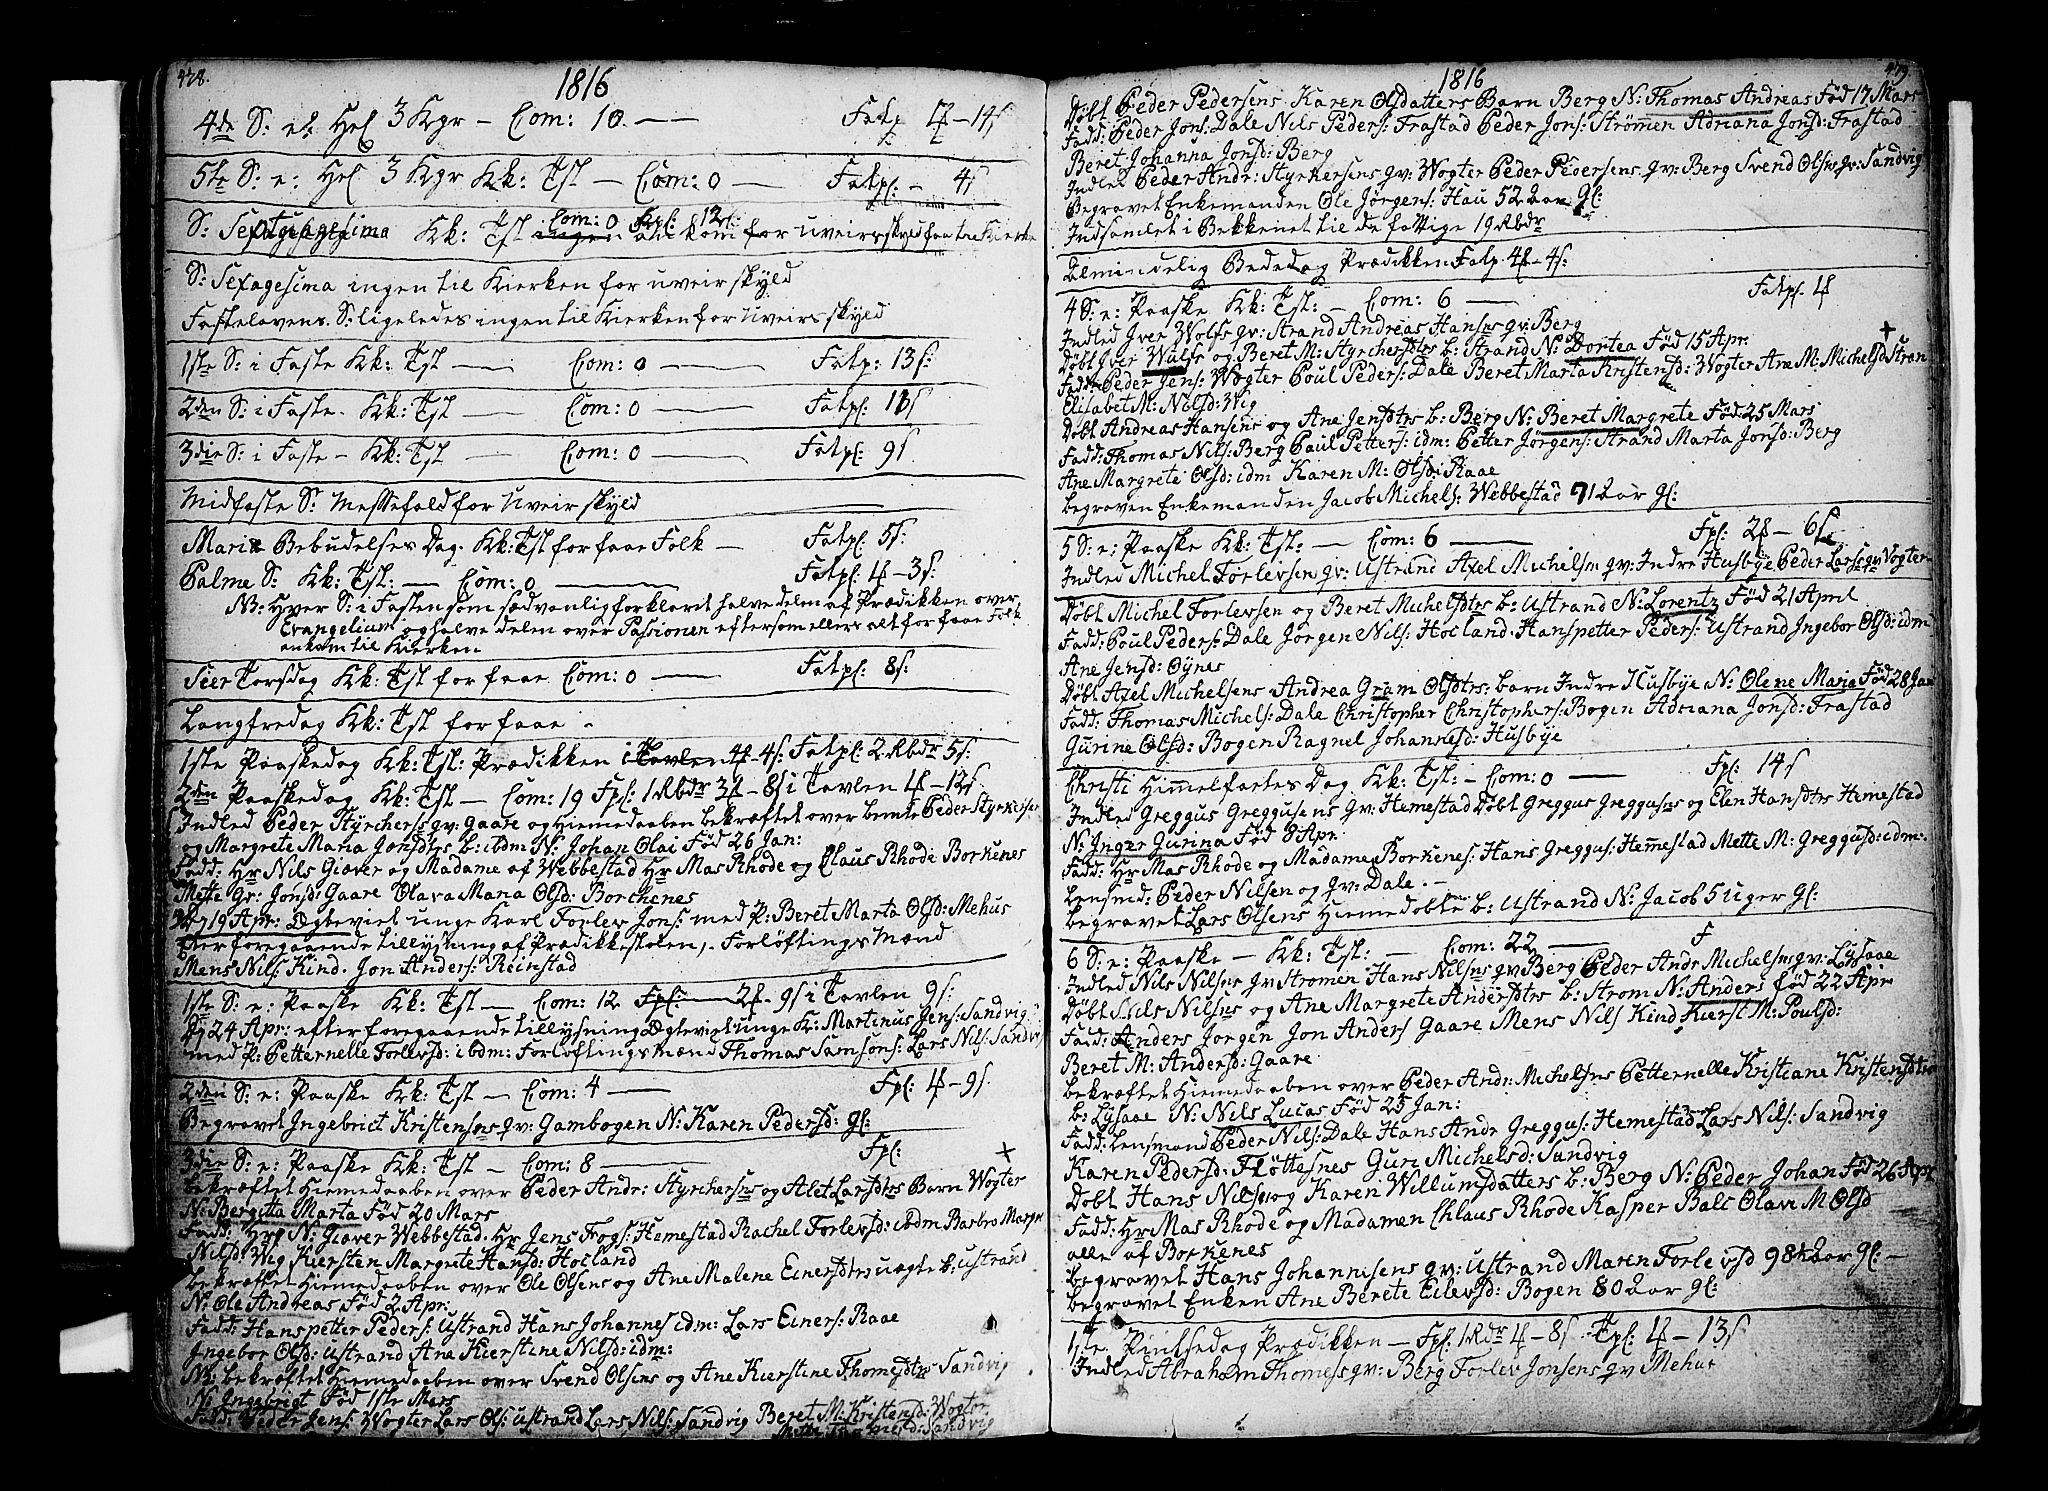 478.
1816
4de S: e: Hel 3 Kgr – Com: 10 — Fatp 1f – 14s
5te S: e: Hel 3 Kgr Kk: Tst — Com: 0 — Fatpl: – 4s
Com: 0 Fpl: 12s:
S: Septuagesima Kk: Tst ingen ankom for uveirs skyld til Kierke
S: Sexagesima ingen til Kierken for uveir skyld
Fastelavens S: ligeledes ingen til Kierken for Uveirs skyld
1ste S: i Faste Kk: Tst — Com: 0 — Fatp: 13s:
2den S: i Faste – Kk: Tst — Com: 0 — Fatpl:
3die S: i Faste – Kk: Tst — Com: 0 — Fatpl: 9s
Midfaste S: Messefald for Uveir skyld
Mariæ Bebudelses Dag. Kk: Tst for faae Folk – Fatpl: 5s:
Palme S: Kk: Tst: — Com: 0 — Fatpl: 1f – 3s:
NB: Hver S: i Fasten som sædvanlig forklaret halve delen af Prædikken over
Evangelium og halve delen over Passionen eftersom ellers alt for faae Folk
ankom til Kierken
Skier Torsdag Kk: Tst for faae Com: 0 — Fatpl: 8s:
Langfredag Kk: Tst for faae –
1ste Paaskedag Kk: Tst: Prædikken i Tavlen 4f – 4s: Fatpl: 2 Rbdr 5s:
2den Paaskedag Kk: Tst — Com: 19 Fpl: 1 Rbdr 3f – 8s i Tavlen 1f – 12s
Indled Peder Styrchers qv: Gaare og Hiemedaaben bekræftet over bemte Peder Styrkers
og Margrete Maria Jonsdtrs b: ibdm N: Johan Olai Fød 26 Jan:
Fadd: Hr Nils Giæver og Madame af Webbestad Hr Mas Rhode og Claus Rhode Borkenes
Mette Gr: Jonsd: Gaare Olava Mana Olsd: Borchenes
D 19 Apr: Ægteviet unge Karl Forlev Jons: med P: Beret Marta Olsd: Mehus
efter foregaaende tillysning af Prædikkestolen, – Forløftings Mænd
Mens Nils: Kind. Jon Anders: Reinstad
1ste S: e: Paaske Kk: Tst — Com: 12 Fpl: — 2f – 9s i Tavlen 9s:
D 24 Apr: efter foregaaende tillysning Ægteviet unge K: Martinus Jens: Sandvig
med P: Petternelle Forlevsd: ibdm: Forløftings Mænd Thomas Samsons: Lars Nils: Sandvi
2den S: e: Paaske Kk: Tst — Com: 4 — Fpl: 1f – 9s.
Begravet Ingebrict Kristensens qv: Gambogen N: Karen Pedersd: gl:
3die S: e: Paaske Kk: Tst – Com: 8 — Fpl: +
bekræftet Hiemedaaben over Peder Andr: Styrchersns og Alet Larsdtrs Barn Wogter
N: Bergitta Marta Fød 20 Mars
Fadd: Hr N: Giæver Webbestad. Hr Jens Frogs: Hemestad Rachel Forlevsd: ibdm Barbro Margr
Nilsd: Wig Kiersten Margrete Hansd: Holland
bekræftet Hiemedaaben over Ole Olsens og Ane Malene Einersdtrs uægte b: ustrand
N: Ole Andreas Fød 2 Apr:
Fadd: Hanspetter Peders: ustrand Hans Johannes idm: Lars Einers: Raae
Ingebor Olsd: ustrand Ane Kierstine Nilsd: idm:
NB: bekræftet Hiemedaaben over Svend Olsens og Ane Kierstine Thomesdtrs Sandvig
N: Ingebrigt Fød 1ste Mars
Fadd: Peder Jens: Wogter Lars Ols: ustrand Lars Nils: Sandvig Beret M: Kristensd: Wogter
Mette Thomesd: Sandvig
479.
1816
Døbt Peder Pedersens Karen Olsdatters Barn Berg N: Thomas Andreas Fød 17 Mars
Fadd: Peder Jons: Dale Nils Peders: Frastad Peder Jons: Strømen Adriana Jonsd: Frastad
Beret Johanna Jonsd: Berg
Indled Peder Andr: Styrkersens qv: Wogter Peder Pedersens qv: Berg Svend Olsens qv: Sandvig
Begravet Enkemanden Ole Jørgens: Hau 52 Aar gl:
Indsamlet i Bekkenet til de fattige 19 Rbdr
Almindelig Bededag Prædikken Fatp. 4f – 4s:
4 S: e: Paaske Kk: Tst: – Com: 6 — Fatpl: 1f
Indled Iver Wolfs qv: Strand Andreas Hansns qv: Berg
Døbt Iver Wulfs og Beret M: Styrchersdtrs b: Strand N: Dortea Fød 15 Apr: +
Fadd: Peder Jens: Wogter Poul Peders: Dale Beret Marta Kristensd: Wogter Ane M: Michelsd Stran
Elisabet M: Nilsd: Wig
Døbt Andreas Hansens og Ane Jensdtrs b: Berg N: Beret Margrete Fød 25 Mars
Fadd: Thomas Nils: Berg Paul Petters: idm: Petter Jørgens: Strand Marta Jonsd: Berg
Ane Margrete Olsd: idm Karen M: Olsd: Raae
begraven Enkemanden Jacob Michels: Webbestad 71 Aar gl:
5 S: e: Paaske Kk: Tst: — Com: 6 — Fpl: 2f – 6s
Indled Michel Forlevsen qv: Ustrand Axel Michelsn qv: Indre Husbye Peder Lars: qv Wogter
Døbt Michel Forlevsen og Beret Michelsdtrs b: Ustrand N: Lorentz Fød 21 April
Fadd: Poul Peders: Dale Jørgen Nils: Holland. Hanspetter Peders: Ustrand Ingebor Olsd: idm
Ane Jensd: Øynes
Døbt Axel Michelsens Andrea Gram Olsdtrs: barn Indre Husbye N: Olene Maria Fød 28 Jan
Fadd: Thomas Michels: Dale Christopher Christophers: Bogen Adriana Jonsd: Frastad
Gurine Olsd: Bogen Ragnel Johannesd: Husbye
Christi Himmelfartes Dag Kk: Tst: – Com: 0 — Fpl: 14s
Indled Greggus Greggusens qv: Hemestad Døbt Greggus Greggusns og Elen Hansdtrs Hemestad
N: Inger Gurina Fød 8 Apr:
Fadd: Hr Mas Rhode og Madame Borkenes: Hans Greggus: Hemestad Mette M: Greggusd: idm:
Lensmd: Peder Nilsen og qv: Dale. –
begravet Lars Olsens Hiemedøbte b: Ustrand N: Jacob 5 Uger gl:
6 S: e: Paaske – Kk: Tst: – Com: 22 — F
Indled Nils Nilsns qv Stromen Hans Nilsns qv Berg Peder Andr Michelsns qv: Lysaae
Døbt Nils Nilsns og Ane Margrete Andersdtrs b: Strom N: Anders Fød 22 Apr
Fadd: Anders Jørgen Jon Anders Gaare Mens Nils Kind Kierst M: Poulsd:
Beret M: Andersd: Gaare
bekræftet Hiemedaaben over Peder Andr: Michelsns Petternelle Kristiane Kristensdtrs
b: Lysaae N: Nils Lucas Fød 25 Jan:
Fadd: Lensmand Peder Nils: Dale Hans Andr Greggus: Hemestad Lars Nils: Sandvig
Karen Pedersd: Fløttesnes Guri Michelsd: Sandvig
Døbt Hans Nilsns og Karen Willumsdatters b: Berg N: Peder Johan Fød 26 Apr
Fadd: Hr Mas Rhode og Madamen Chlaus Rhode Kasper Bals Olavi M Olsd
alle af Borkenes
begravet Hans Johannisens qv: Ustrand Maren Forlevsd 98½ Aar gl: –
begravet Enken Ane Berete Eilevsd: Bogen 80 Aar gl:
1ste Pintsedag Prædikken — Fpl: 1 Rdr 1f – 8s: Tpl: 1f – 13s
Indled Abraham Thomess qv: Berg Forlev Jonsens qv Mehus